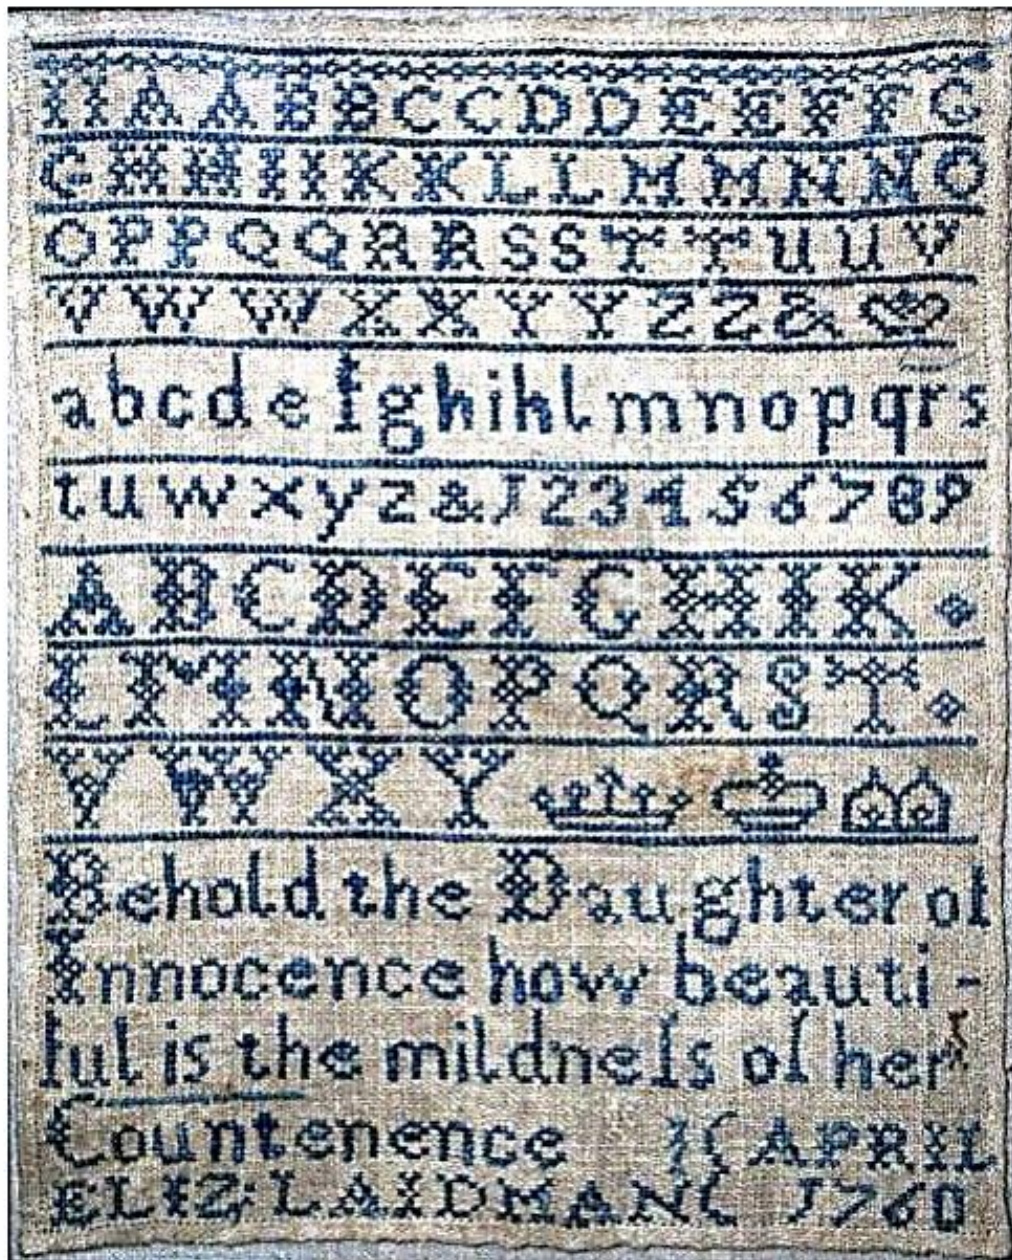 A A B B C C D D E E F F G
G H H I I K K L L M M N N O
O P P Q Q R R S S T T U U V
V W W X X Y Y Z Z &
a b c d e f g h i k l m n o p q r s
t u w x y z & 1 2 3 4 5 6 7 8 9
A B C D E F G H I K
L M N O P Q R S T
V W X Y
Behold the Daughter of
Innocence how beauti-
ful is the mildneſs of her
Countenence APRIL
ELIZ LAIDMAN 1760